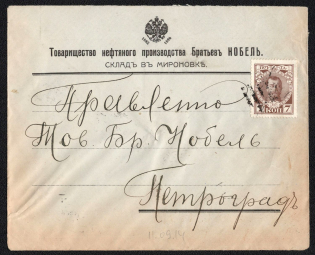 Товарищество нефтяного производства Братьевъ НОБЕЛЬ.
СКЛАДЪ ВЪ МИРОНОВКѢ.
Правленiю
Тов. Бр. Нобель
Петроградъ
7 КОП 7